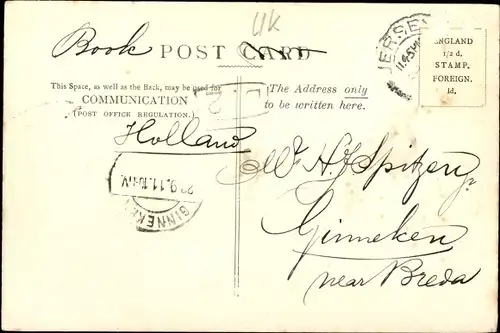 UK
Book POST CARD
This Space, as well as the Back, may be used for
COMMUNICATION
(POST OFFICE REGULATION.)
Holland
The Address only
to be written here.
ENGLAND
1/2 d.
STAMP.
FOREIGN.
1d.
JERSEY
L
2
GINNEKEN
Mr. H. J. Spitzen
Ginneken
near Breda